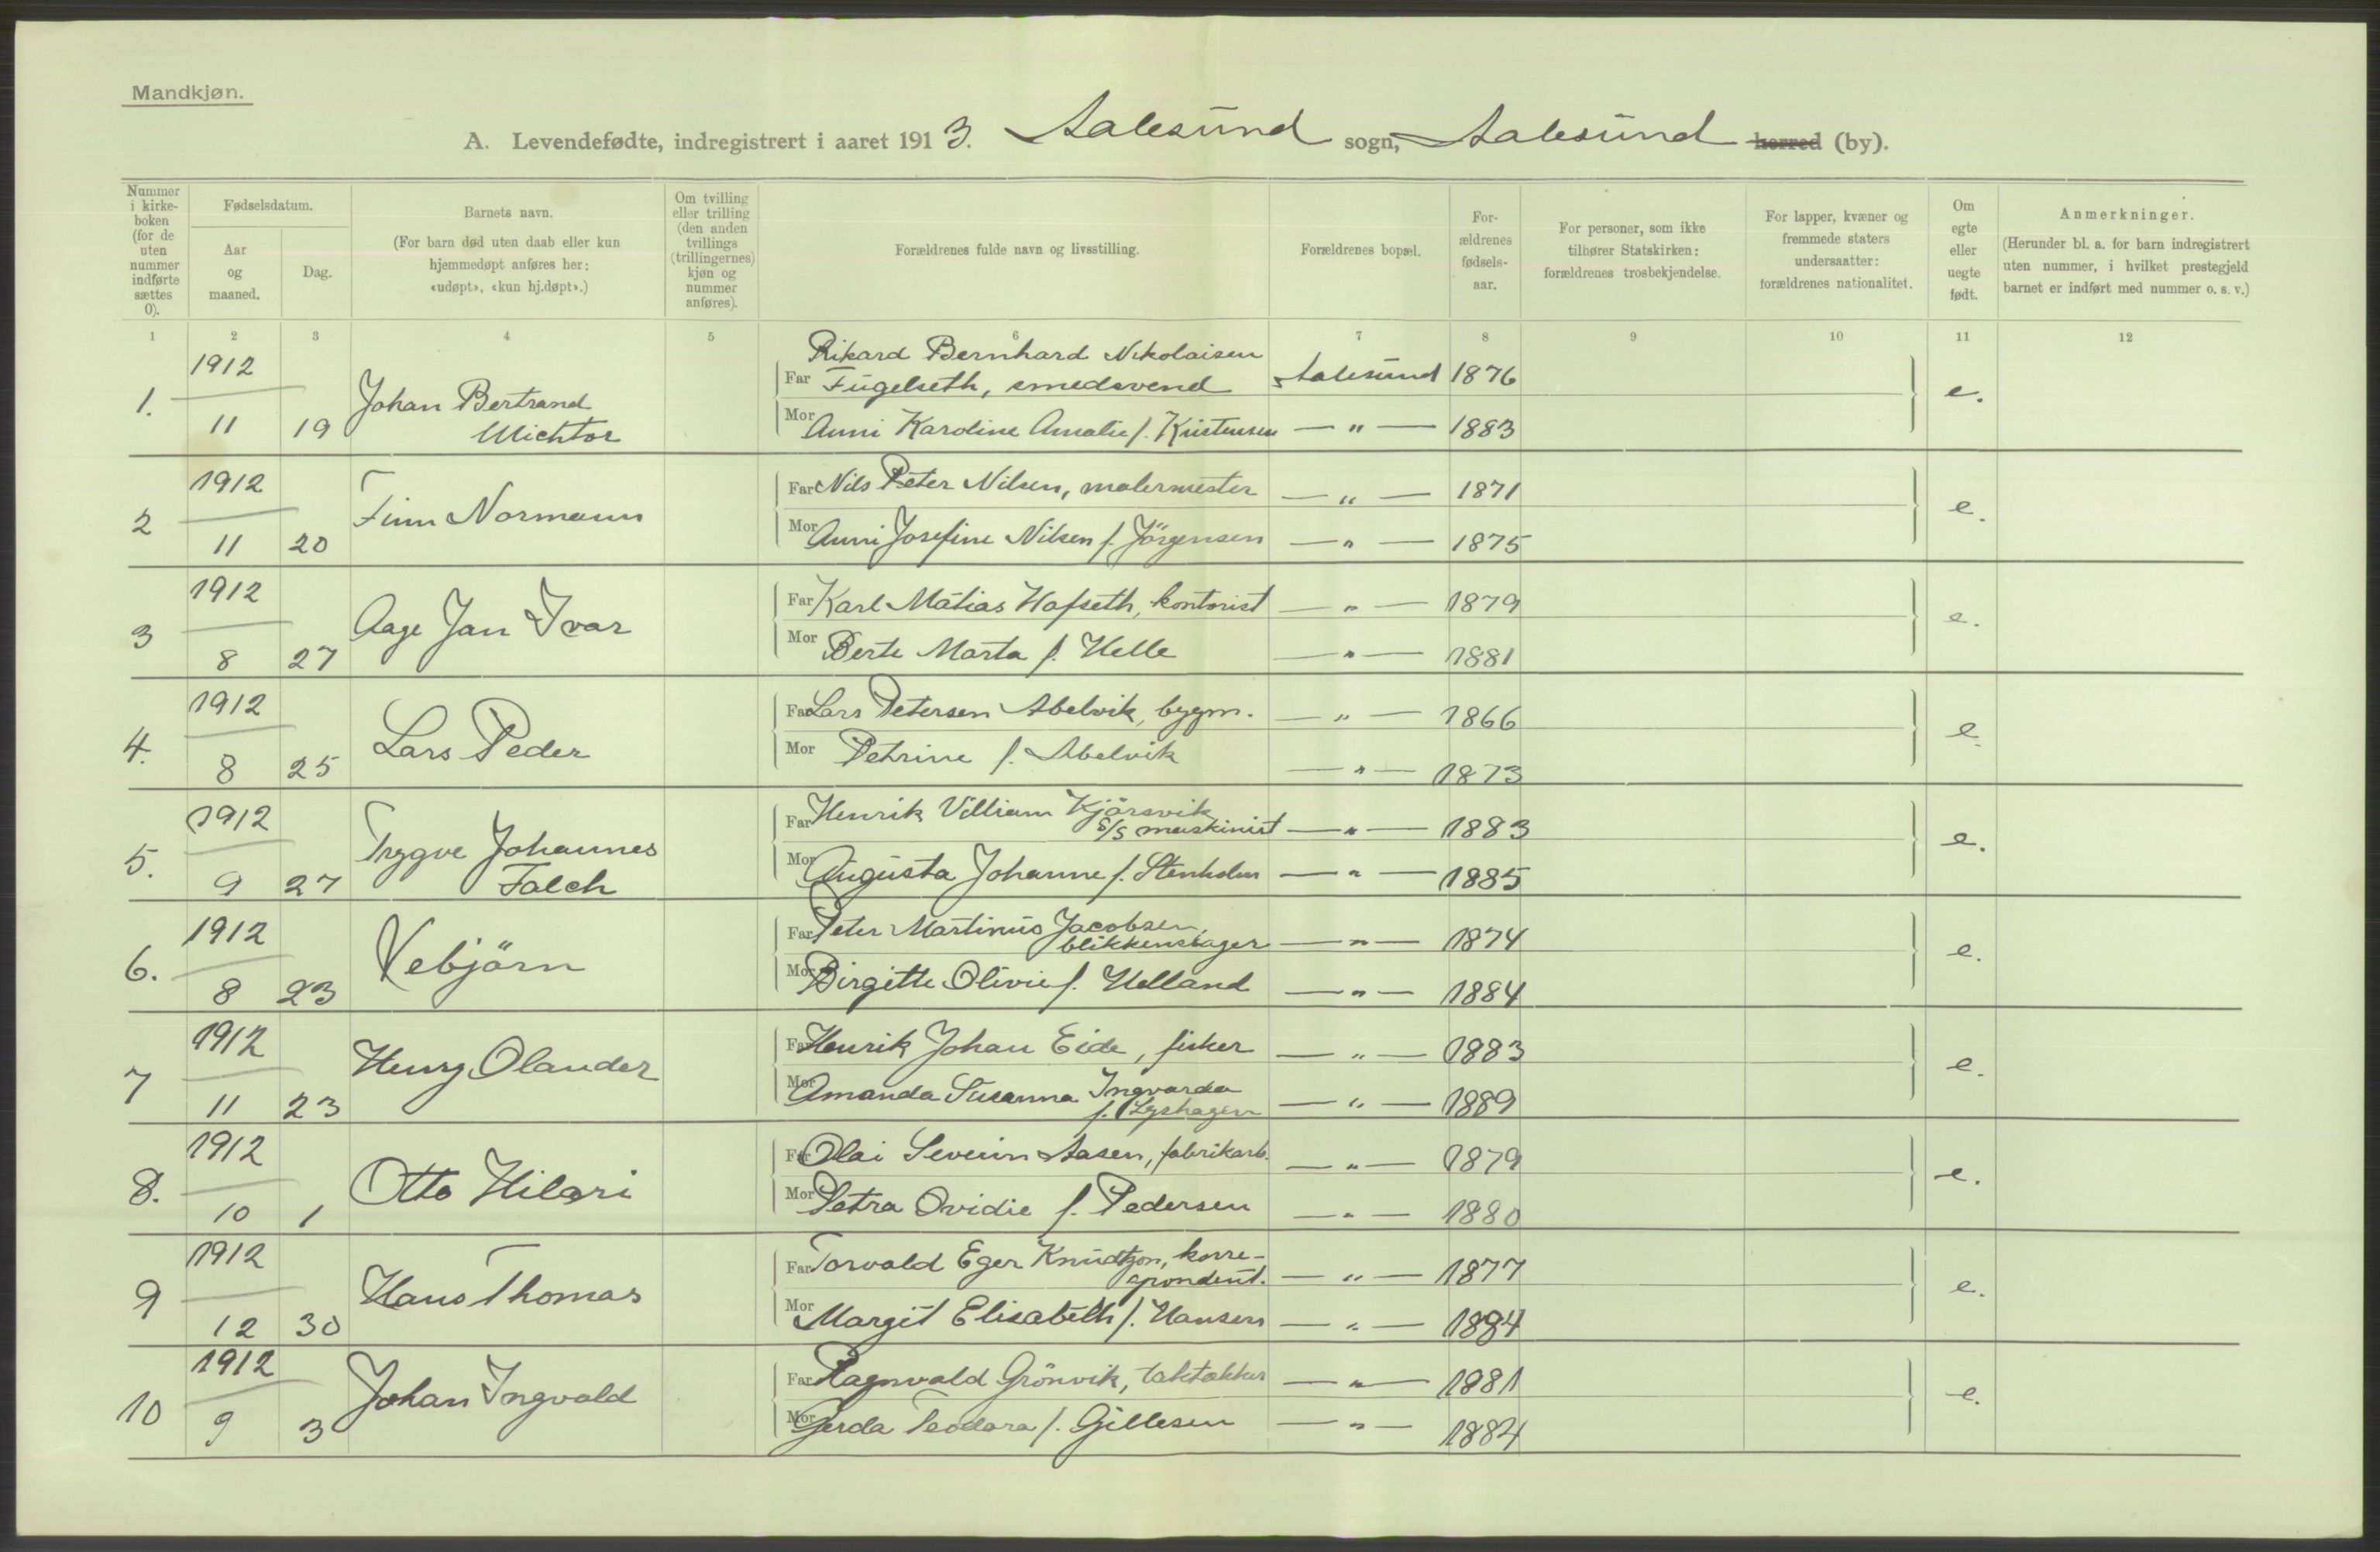 Mandkjøn.
A. Levendefødte, indregistrert i aaret 1913. Aalesund sogn, Aalesund herred (by).
Nummer i kirke-boken (for de uten nummer indførte sættes 0).
Fødselsdatum.
Aar og maaned.
Dag.
Barnets navn.
(For barn død uten daab eller kun hjemmedøpt anføres her: «udøpt», «kun hj.døpt».)
Om tvilling eller trilling (den anden tvillings (trillingernes) kjøn og nummer anføres).
Forældrenes fulde navn og livsstilling.
Forældrenes bopæl.
For-ældrenes fødsels-aar.
For personer, som ikke tilhører Statskirken: forældrenes trosbekjendelse.
For lapper, kvæner og fremmede staters undersaatter: forældrenes nationalitet.
Om egte eller uegte født.
Anmerkninger.
(Herunder bl. a. for barn indregistrert uten nummer, i hvilket prestegjeld barnet er indført med nummer o. s. v.)
1 2 3 4 5 6 7 8 9 10 11 12
1. 1912 11 19 Johan Bertrand
Michtor
Rikard Bernhard Nikolaisen
Far Fugelseth, smedsvend Aalesund 1876 e.
Mor Anni Karoline Amalie f. Kristensen — " — 1883
2 1912 11 20 Finn Normann
Far Nils Peter Nilsen, malermester — " — 1871 e.
Mor Anni Josefine Nilsen f. Jörgensen — " — 1875
3 1912 8 27 Aage Jan Ivar
Far Karl Matias Hafseth, kontorist — " — 1879 e.
Mor Berte Marta f. Helle — " — 1881
4. 1912 8 25 Lars Peder
Far Lars Petersen Abelvik, bygm. — " — 1866 e.
Mor Petrine f. Abelvik — " — 1873
5. 1912 9 27 Trygve Johannes
Falch
Far Henrik Villiam Kjörsvik
S/S maskinist — " — 1883 e.
Mor Augusta Johanne f. Stenholm — " — 1885
6. 1912 8 23 Vebjörn
Far Peter Martinus Jacobsen,
blikkenslager — " — 1874 e.
Mor Birgitte Olivie f. Helland — " — 1884
7 1912 11 23 Henry Olander
Far Henrik Johan Eide, fisker — " — 1883 e.
Mor Amanda Susanna Ingvarda
f. Lyshagen — " — 1889
8. 1912 10 1 Otto Hilari
Far Olai Severin Aasen, fabrikarb. — " — 1879 e.
Mor Petra Ovidie f. Pedersen — " — 1880
9 1912 12 30 Hans Thomas
Far Torvald Eger Knudtzon, korre-
spondent. — " — 1877 e.
Mor Margit Elisabeth f. Hansen — " — 1884
10 1912 9 3 Johan Ingvald
Far Ragnvald Grönvik, taktækker — " — 1881 e.
Mor Gerda Teodora f. Gillesen — " — 1884